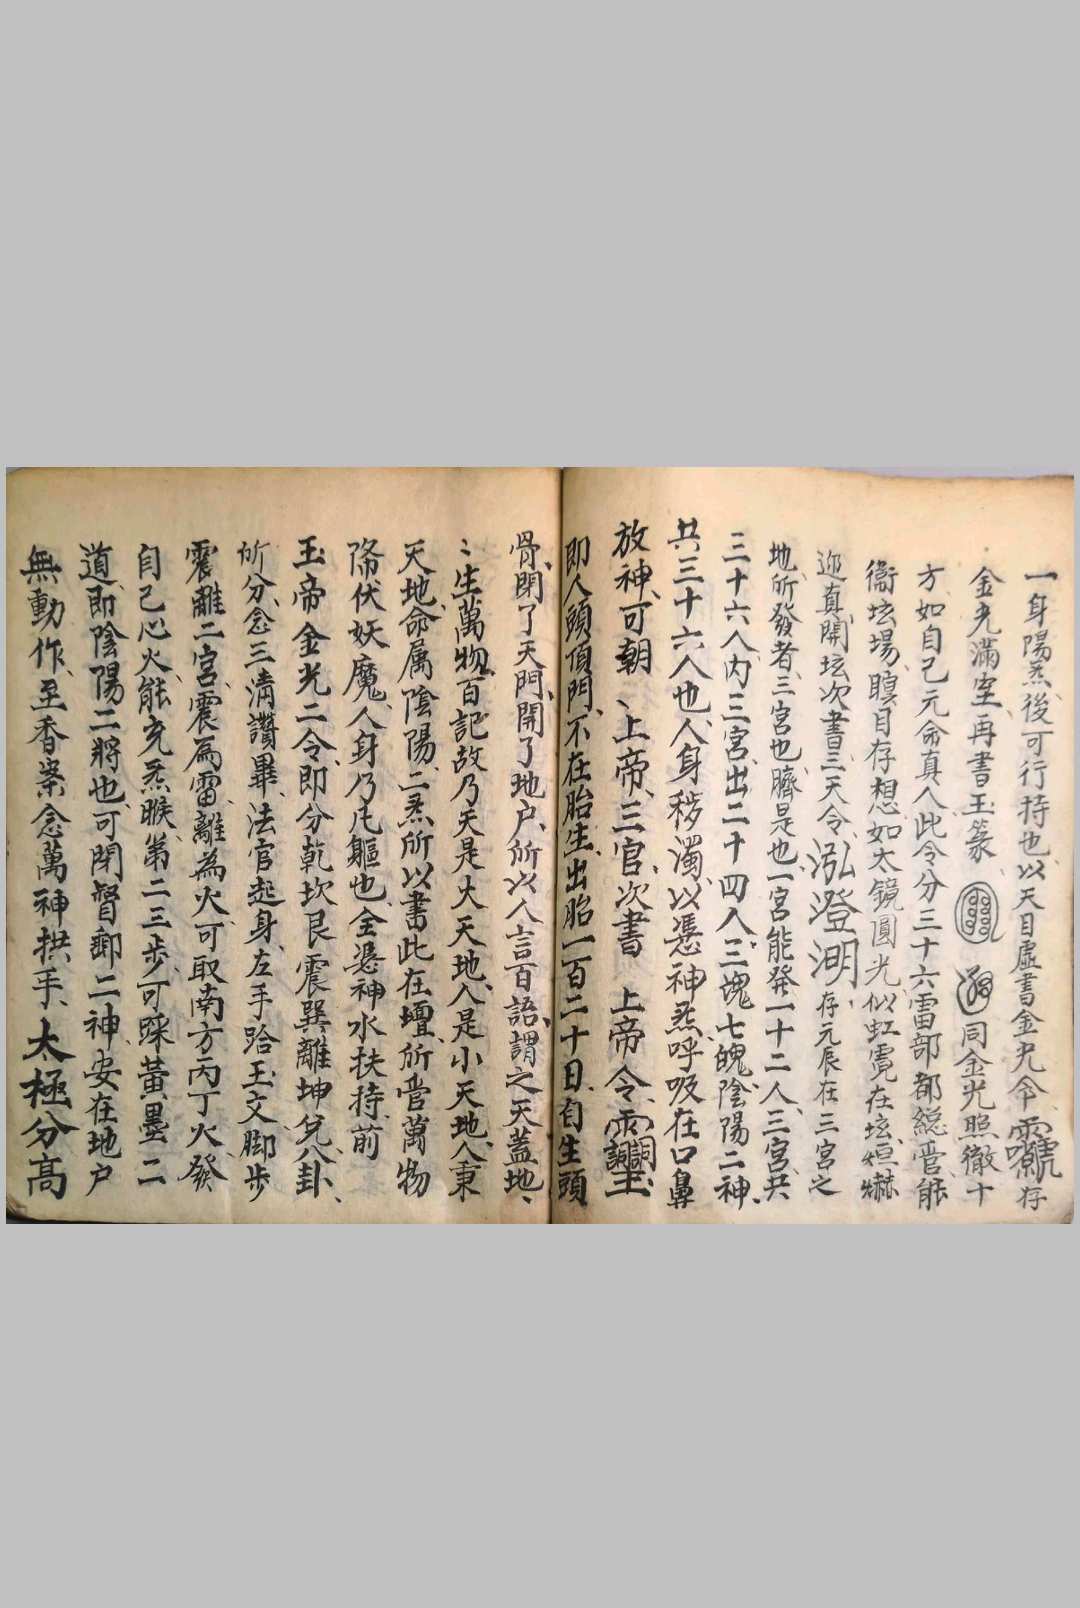 一身陽炁後可行持也以天目虛書金光令存
金光滿空再書玉篆同金光照徹十
方如自己元命真人此令分三十六雷部都総管能
衞坛場瞑目存想如太鏡圓光似虹霓在坛烜爀
迎真開坛次書三天令泓澄湖存元辰在三宮之
地所發者三宮也臍是也一宮能発一十二人三宮共
三十六人内三宮出二十四人三魂七魄陰陽二神
共三十六人也人身穢濁以憑神炁呼吸在口鼻
放神可朝上帝三官次書 上帝令
即人頭頂門不在胎生出胎一百二十日自生頭
骨閉了天門開了地户所以人言百語謂之天蓋地
〻生萬物百記故乃天是大天地人是小天地人秉
天地命属陰陽二炁所以書此在壇所管萬物
降伏妖魔人身乃凡軀也全憑神水扶持前
玉帝金光二令即分乾坎艮震巽離坤兌八卦
所分念三清讚畢法官起身左手跲玉文脚步
震離二宮震為雷離為火可取南方丙丁火發
自己心火能充炁睺第二三步可踩黃墨二
道即陰陽二將也可閉督郵二神安在地户
無動作至香案念萬神拱手太極分高